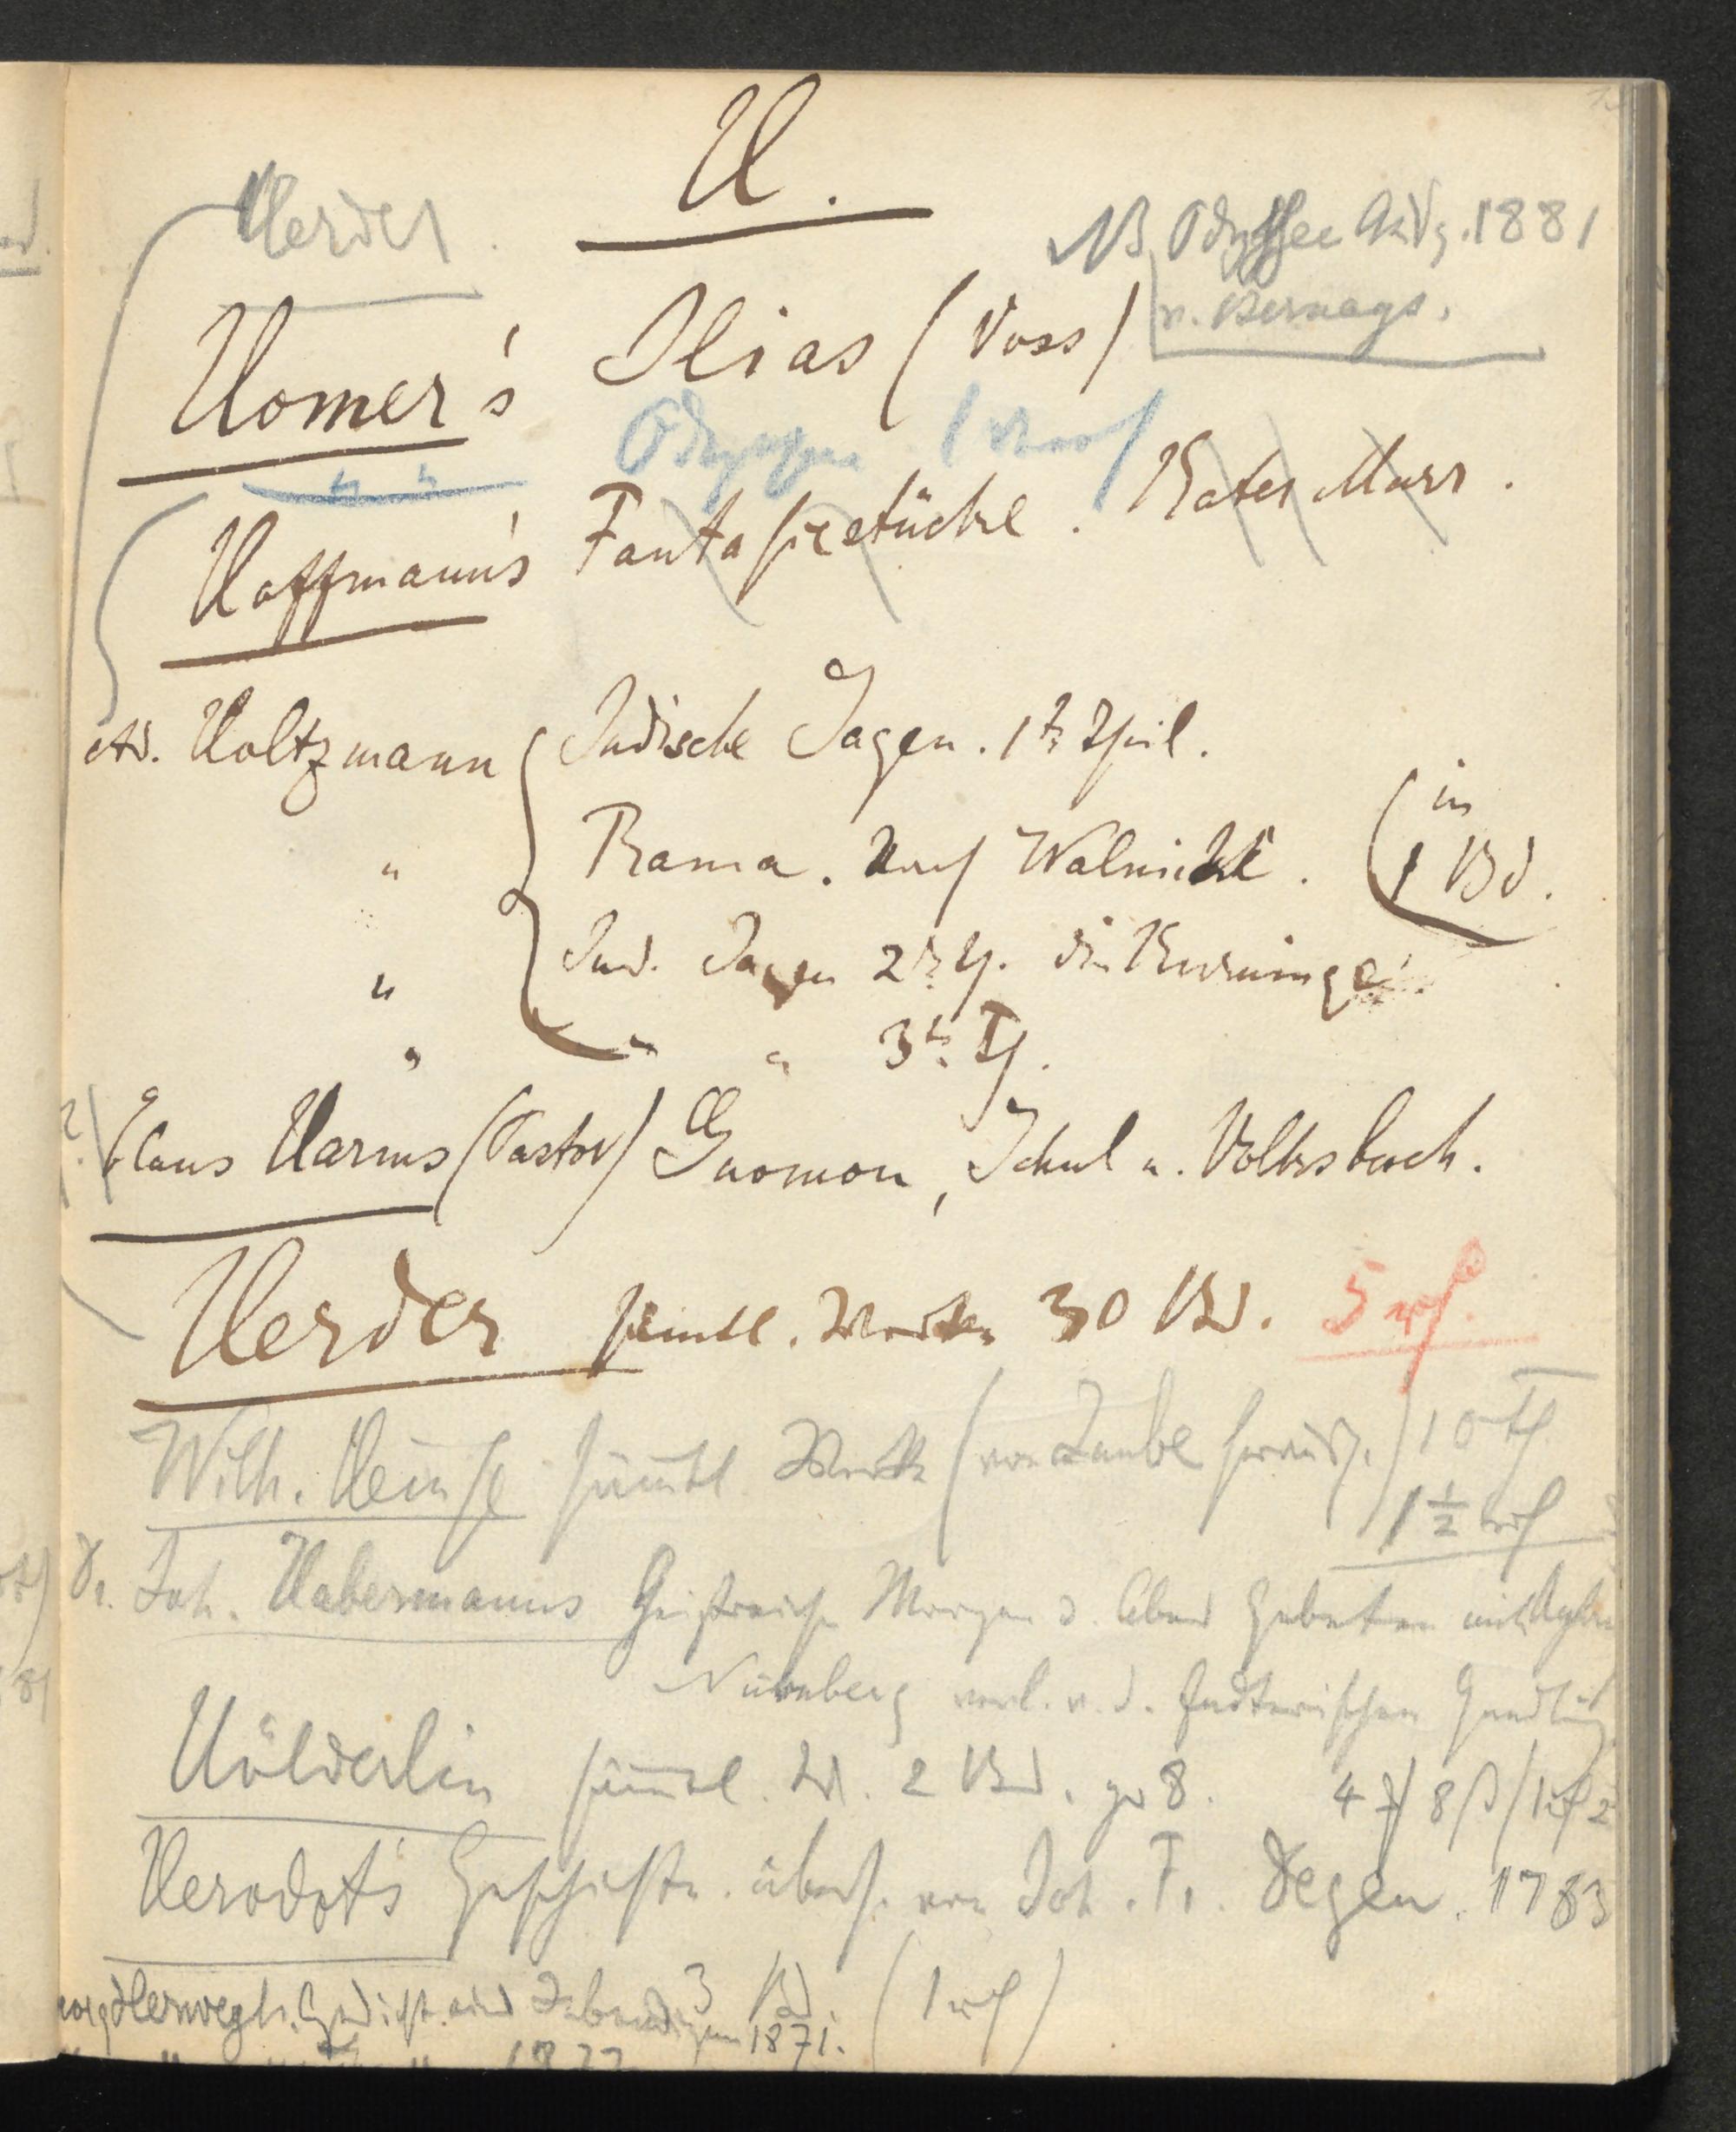 H.
Herder.
NB Odyssee Ausg. 1881
v. Bernays.
Homer's Ilias (Voss)
" " Odyssee (Voss)
Hoffmann's Fantasiestücke. Kater Murr.
Ad. Holtzmann Indische Sagen. 1r Theil.
" Rama. nach Walmiki. (in
1 Bd.
" Ind. Sagen 2r Th. die Kuruinge.
" " " 3r Th.
? Claus Harms (Pastor) Gnomon, Schul u. Volksbuch.
Herder sämtl. Werke 30 Bd. 5 rh
Wilh. Heinse sämtl. Werke (von Laube herausg.) 10 Th
1½ rh
Dr. Joh. Habermanns Geistreiche Morgen u. Abend Gebeten mit
Nürnberg verl. v. d. Endterischen Handlung
Hölderlin sämtl. W. 2 Bd. gr 8. 4 f 8 ß / 1 rh 2
Herodot's Geschichte. übers. von Joh. Fr. Degen. 1783
3 Bd. (1 rh)
Herwegh. Gedichte eines Lebendigen 1871.